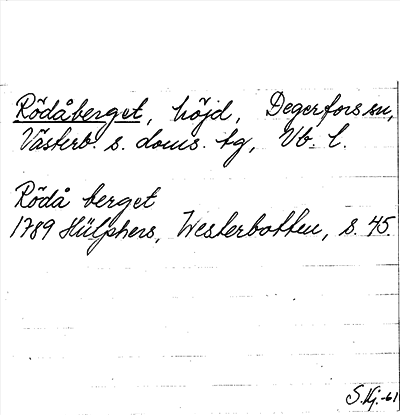 Rödåberget, höjd, Degerfors sn,
Västerb. s. doms. tg, Vb. l.
Rödå berget
1789 Hülphers, Westerbotten, s. 45.
S. Hj. -61